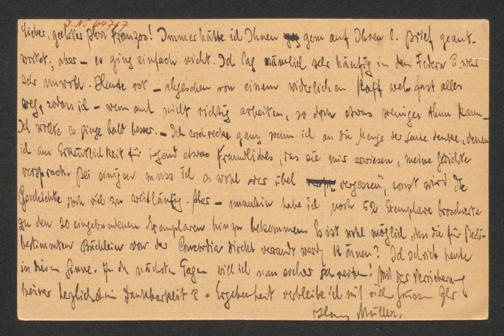 J. Nr. 64717
Lieber, geehrter Herr Franzos! Immer hätte ich Ihnen gern auf Ihren l. Brief geant-
wortet; aber – es ging einfach nicht. Ich lag nämlich sehr häufig in den Federn & war
sehr unwohl. Heute ist – abgesehen von einem widerlichen Kopfweh fast alles
weg, sodass ich – wenn auch nicht richtig arbeiten, so doch etwas weniges thun kann.
Ich wollte es ginge halt besser. – Ich erschrecke ganz wenn ich an die Menge der Leute denke, denen
ich aus Erkenntlichkeit für irgend etwas Freundliches, das sie mir erwiesen, meine Gedichte
versprach. Bei einigen muss ich es wohl oder übel "vergessen", sonst wird die
Geschichte doch viel zu . Aber – immerhin habe ich noch 50 Exemplare broschierte
zu den 20 eingebundenen Exemplaren hinzu bekommen. Es ist wohl möglich, dass die für
bestimmten Büchlein von der Concordia direkt versandt werden können? Ich schrieb heute
in diesem Sinne. In den nächsten Tagen will ich nun Mit der Versicherung
meiner herzlichsten Dankbarkeit & Ergebenheit verbleibe ich mit vielen Grüssen Ihr
Hans Müller.